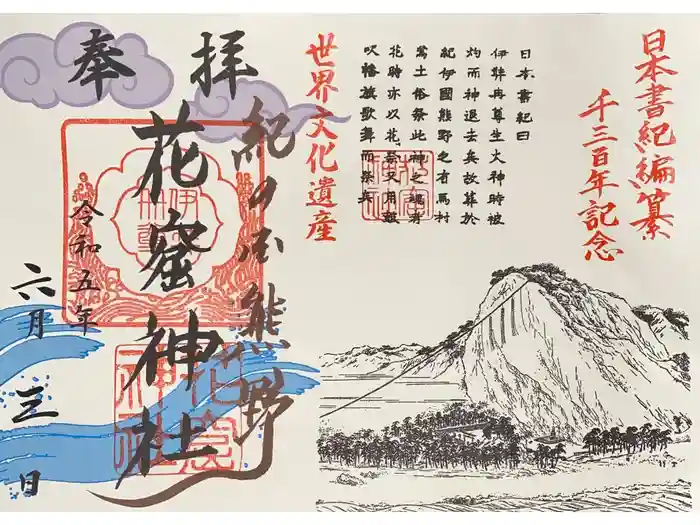 日本書紀編纂
千三百年記念
日本書紀曰
伊弉冉尊生火神時被
灼而神退去矣故葬於
紀伊國熊野之有馬村
焉土俗祭此神之魂者
花時亦以花祭又用鼓
吹幡旗歌舞而祭矣
世界文化遺産
奉拝
紀の国熊野
花窟神社
令和五年
六月三日